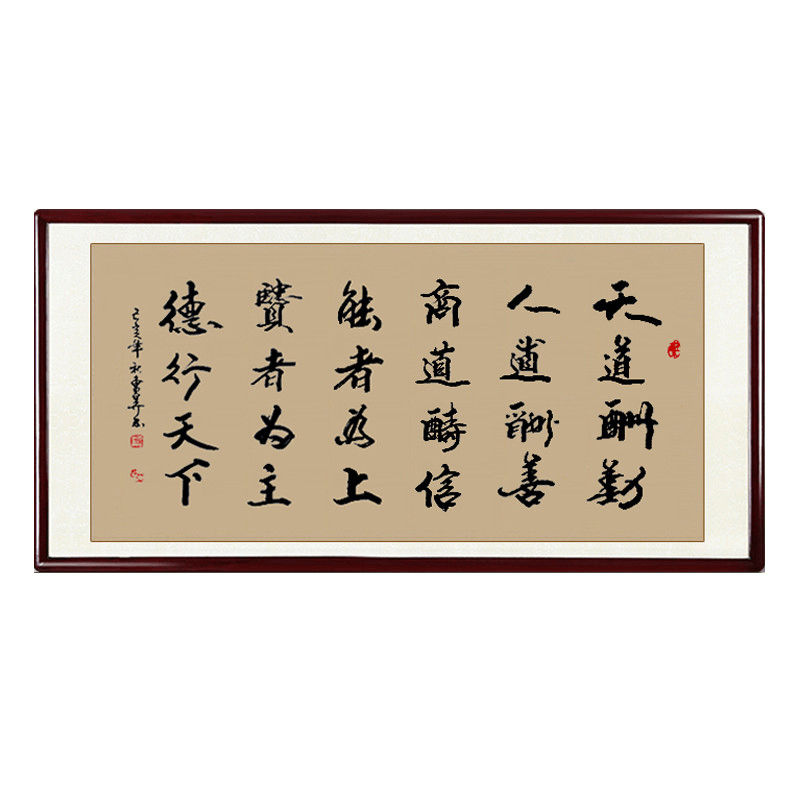 天道酬勤
人道酬善
商道酬信
能者为上
賢者为主
德行天下
己亥年秋